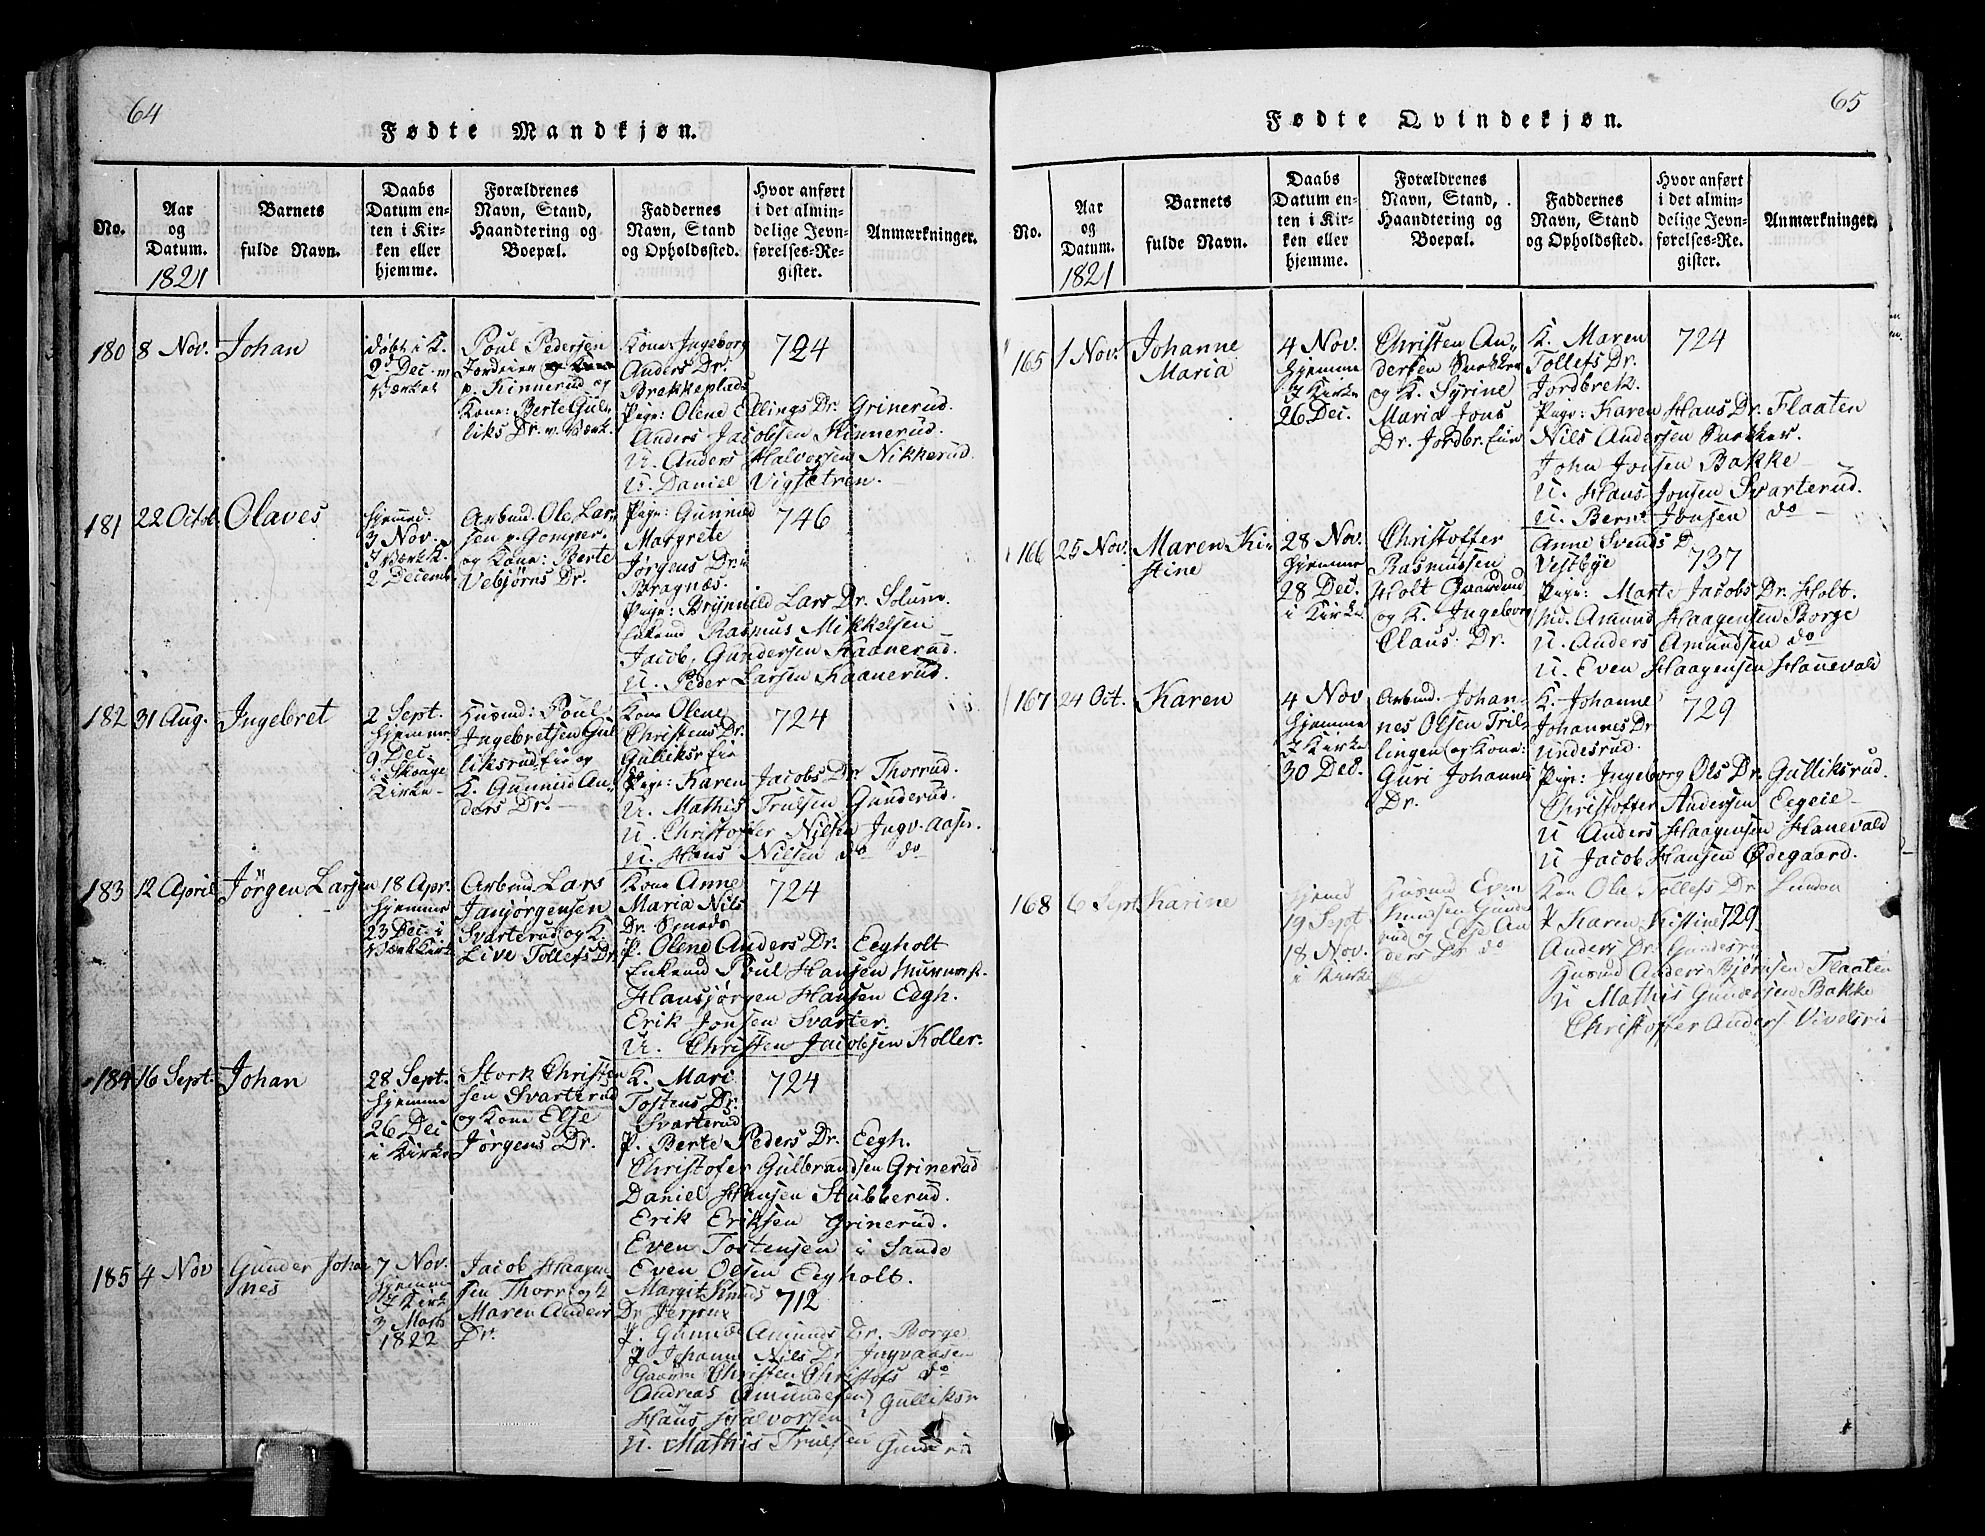 64
Fødte Mandkjøn.
No.
Aar
og
Datum.
1821
Barnets
fulde Navn.
Daabs
Datum en-
ten i Kir-
ken eller
hjemme.
Forældrenes
Navn, Stand,
Haandtering og
Boepæl.
Faddernes
Navn, Stand
og Opholdssted.
Hvor anført
i det almin-
delige Jevn-
førelses-Re-
gister.
Anmærkninger.
180
8 Nov.
Johan
døbt i K.
2d Dec. v.
Værket
Poul Pedersen
Jordeier
p. Kinnerud og
Kone: Berte Gul-
liks Dr. v. Værk.
Kone Ingeborg
Anders Dr.
Brekkeplads
Pige: Olene Ellings Dr. Grinerud.
Anders Jacobsen Kinnerud.
U. Anders Halvorsen Nikkerud.
U. Daniel Vigsætren.
724
181
22 Octob.
Olaves
hjemed.
3 Nov.
I Værk K.
2 Decemb.
Arbmd. Ole Lar-
sen p. Gomper.
og Kone: Berte
Vebjørns Dr.
Pige: Gunnild
Margrete
Jørgens Dr.
Bragnæs.
Pige: Brynnild Lars Dr. Solum.
Enkemd Rasmus Mikkelsen
Jacob Gundersen Kaanerud.
U. Peder Larsen Kaanerud.
746
182
31 Aug.
Ingebret
2 Sept.
hjemme
9 Dec.
i Skouge
Kirke
Huusmd: Poul
Ingebretsen Gul
liksrud eie og
K. Gunnild An-
ders Dr.
Kone Olene
Christens Dr.
Guliksr eie
Pige: Karen Jacobs Dr. Thorrud.
U. Mathis Trulsen Gunderud.
U. Christoffer Nilsen Ingv. aasn.
U. Hans Nilsen do do
724
183
12 April
Jørgen Larsen
18 Apr.
hjemme
23 Dec. i
Værk Kirk
Arbmd Lars
Janjørgensen
Svarterud og K.
Live Tollefs Dr.
Kone Anne
Maria Nils
Dr. Smeds
P. Olene Anders Dr. Eegholt
Enkemd Poul Hansen Muurmst.
Hansjørgen Hansen Eegh.
Erik Jonsen Svarter.
U. Christen Jacobsen Koller.
724
184
16 Sept.
Johan
28 Sept.
hjemme
26 Dec
i Kirke
Stork Christen
sen Svarterud
og Kone Else
Jørgens Dr.
K. Mari
Tostens Dr.
Svarterud
P. Berte Peders Dr. Eegh.
Christofer Gulbrandsen Grinerud
Daniel Hansen Stubberud.
Erik Eriksen Grinerud.
Even Tostensen i Sande
Even Olsen Eegholt.
724
185
4 Nov
Gunder Johan
nes
7 Nov.
hjemme
I Kirk
3 Marts
1822
Jacob Haagen
sen Thorr. og K
Maren Anders
Dr.
Margit Knuds
Dr.
P. Gunnild Amunds Dr. Borge
P Johanne Nils Dr Ingvaasen
Christen Christofs do
Andreas Amundsen Gulliksr
Hans Halvorsen
U. Mathis Trulsen Gunderu
712
65
Fødte Qvindekjøn.
No.
Aar
og
Datum.
1821
Barnets
fulde Navn.
Daabs
Datum en-
ten i Kir-
ken eller
hjemme.
Forældrenes
Navn, Stand,
Haandtering og
Boepæl.
Faddernes
Navn, Stand
og Opholdssted.
Hvor anført
i det almin-
delige Jevn-
førelses-Re-
gister.
Anmærkninger.
165
1 Nov.
Johanne
Maria
4 Nov.
hjemme
I Kirke
26 Dec.
Christen An-
dersen Snekker
og K. Syrine
Maria Jons
Dr. Jordbr. Eie
K. Maren
Tollefs Dr.
Jordbrek.
Pige: Karen Hans Dr. Flaaten
Nils Andersen Snekker.
John Jonsen Bakke
U. Hans Jonsen Svarterud.
U. Bernt Jonsen do
724
166
25 Nov.
Maren Ki-
stine
28 Nov.
hjemme
28 Dec.
i Kirke
Christoffer
Rasmussen
Holt Gaardmd
og K. Ingeborg
Claus: Dr.
Anne Svends D
Vestbye
Pige: Marte Jacobs Dr. Holt.
Amund Haagensen Borge
U. Anders Amundsen do
U. Even Haagensen Hanevald
737
167
24 Oct.
Karen
4 Nov
hjemme
I Kirke
30 Dec.
Arbmd. Johan-
nes Olsen Tril-
lingen og Kone:
Guri Johannes
Dr.
K. Johanne
Johannes Dr
Undesrud.
Pige: Ingeborg Ols Dr. Gulliksrud.
Christoffer Andersen Eegeie
U Anders Haagensen Hanevald
U Jacob Hansen Ødegaard.
729
168
6 Sept
Karine
hjemd
19 Sept
18 Nov.
i Kirke
Huusmd Even
Knudsen Gunde
rud og Else An
ders Dr do
Kon Ole Tollefs Dr Lundon
P Karen Kistine
Anders Dr. Gunderu
Huusmd Anders Bjørnsen Flaaten
U Mathis Gundersen Bakke
Christoffer Anders
729